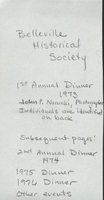 Belleville
Historical
Society
1st Annual Dinner
1973
John P. Photographer
Individuals are identified
on back
Subsequent pages:
2nd Annual Dinner
1974
1975 Dinner
1976 Dinner
Other events